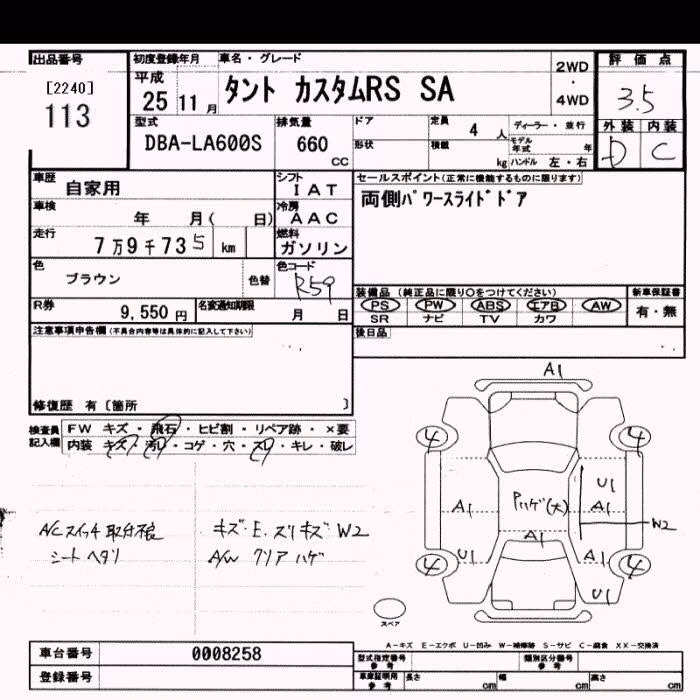 出品番号
[2240]
113
初度登録年月
平成
25 11 月
車名・グレード
タント カスタムRS SA
2WD
・
4WD
評価点
3.5
外装 内装
D C
型式
DBA-LA600S
排気量
660
CC
ドア
形状
定員 4 人
積載 kg
ディーラー・並行
モデル年式 年
ハンドル 左・右
車歴
自家用
シフト
IAT
セールスポイント(正常に機能するものに限ります)
両側パワースライドドア
車検
年 月( 日)
冷房
AAC
走行
7万9千735 km
燃料
ガソリン
色
ブラウン
色替
色コード
R59
装備品 (純正品に限り○をつけてください)
PS PW ABS エアB AW
SR ナビ TV カワ
新車保証書
有・無
R券
9,550 円
名変通知期限
月 日
後日品
注意事項申告欄(不具合内容等は具体的に記入して下さい)
修復歴 有〔箇所 〕
検査員記入欄
FW キズ・飛石・ヒビ割・リペア跡・×要
内装 キズ・汚レ・コゲ・穴・スレ・キレ・破レ
A/Cスイッチ取付不良
シートヘタリ
キズ・E.スリキズW2
A/W クリアハゲ
A1
4 4
U1
A1 Pハゲ(大) A1
W2
A1
U1 A1
4 4
U1
スペア
A-キズ E-エクボ U-凹み W-補修跡 S-サビ C-腐食 XX-交換済
車台番号 0008258
登録番号
型式指定番号 参考
類別区分番号 参考
車庫証明用 参考
長さ cm
幅 cm
高さ cm